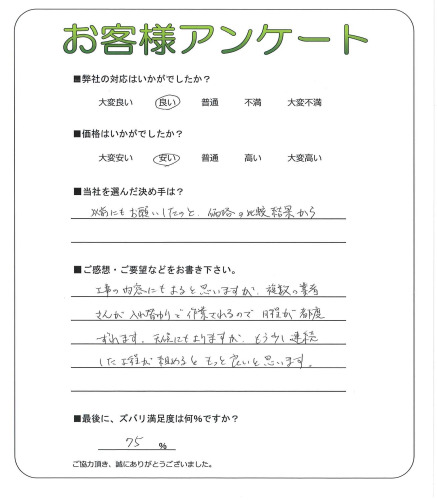 お客様アンケート
■弊社の対応はいかがでしたか？
大変良い 良い 普通 不満 大変不満
■価格はいかがでしたか？
大変安い 安い 普通 高い 大変高い
■当社を選んだ決め手は？
以前にもお願いしたのと、価格の比較結果から
■ご感想・ご要望などをお書き下さい。
工事の内容にもよると思いますが、複数の業者
さんが入れ替わりで作業されるので 日程が都度
ずれます。天候にもよりますが、もう少し連続
した工程が組めるともっと良いと思います。
■最後に、ズバリ満足度は何％ですか？
75 %
ご協力頂き、誠にありがとうございました。